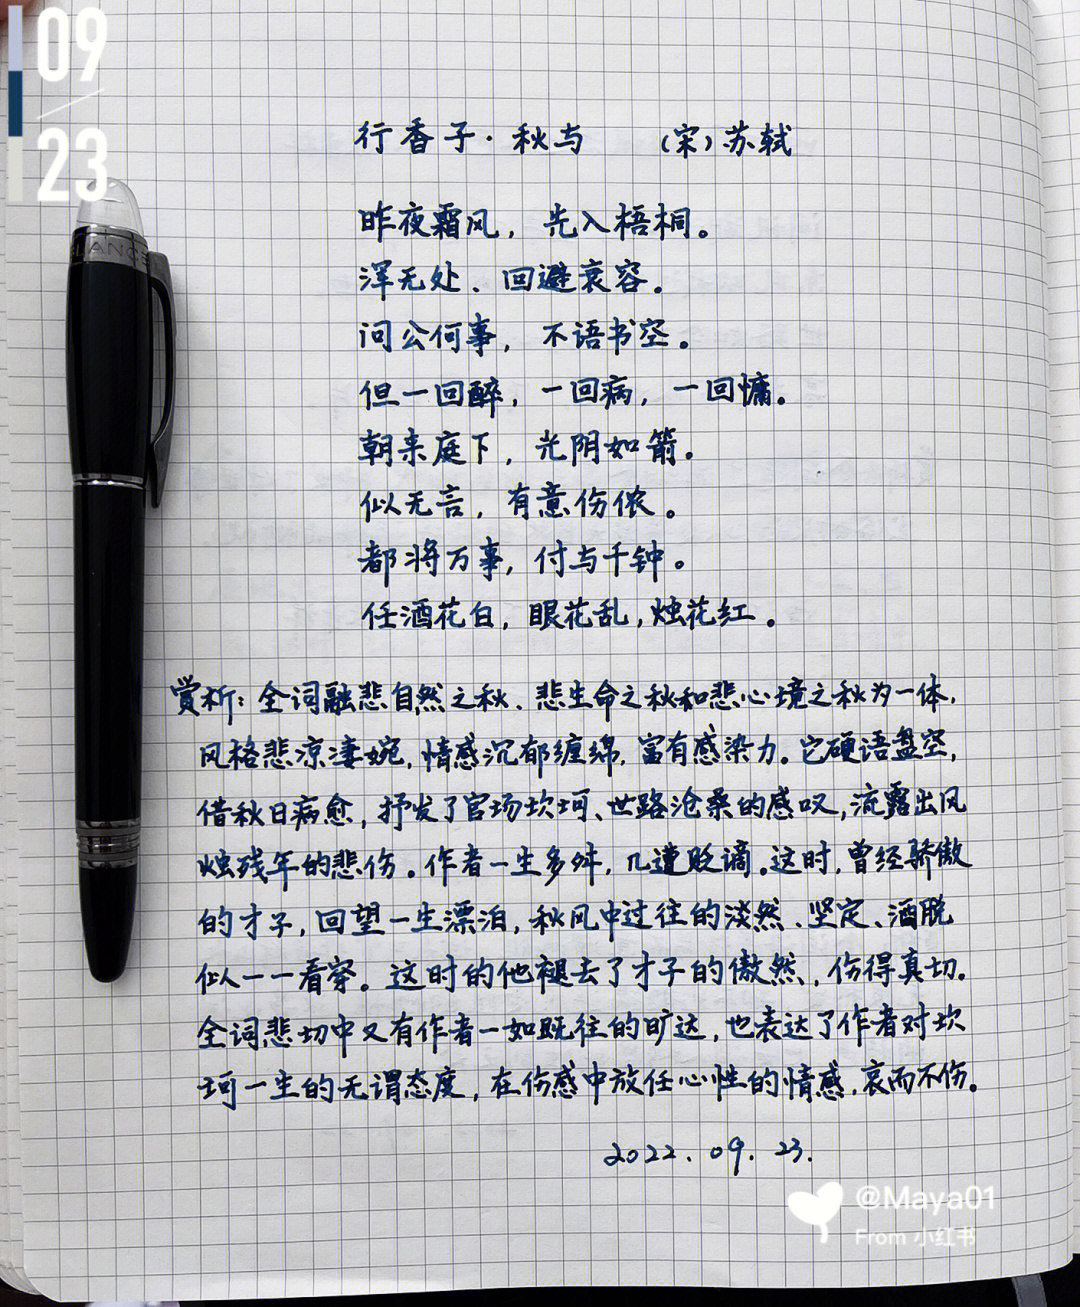 09
23
行香子·秋与 (宋)苏轼
昨夜霜风,先入梧桐。
浑无处、回避衰容。
问公何事,不语书空。
但一回醉,一回病,一回慵。
朝来庭下,光阴如箭。
似无言,有意伤侬。
都将万事,付与千钟。
任酒花白,眼花乱,烛花红。
赏析:全词融悲自然之秋、悲生命之秋和悲心境之秋为一体,
风格悲凉凄婉,情感沉郁缠绵,富有感染力。它硬语盘空,
借秋日病愈,抒发了官场坎坷、世路沧桑的感叹,流露出风
烛残年的悲伤。作者一生多舛,几遭贬谪。这时,曾经骄傲
的才子,回望一生漂泊,秋风中过往的淡然、坚定、洒脱
似一一看穿。这时的他褪去了才子的傲然,伤得真切。
全词悲切中又有作者一如既往的旷达,也表达了作者对坎
坷一生的无谓态度,在伤感中放任心性的情感,哀而不伤。
2022.09.23.
@Maya01
From 小红书